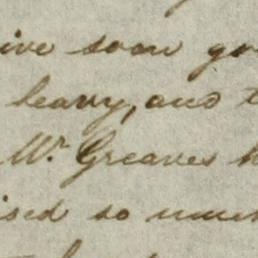 ive soon
heavy, and
Mr. Greaves
ised so much